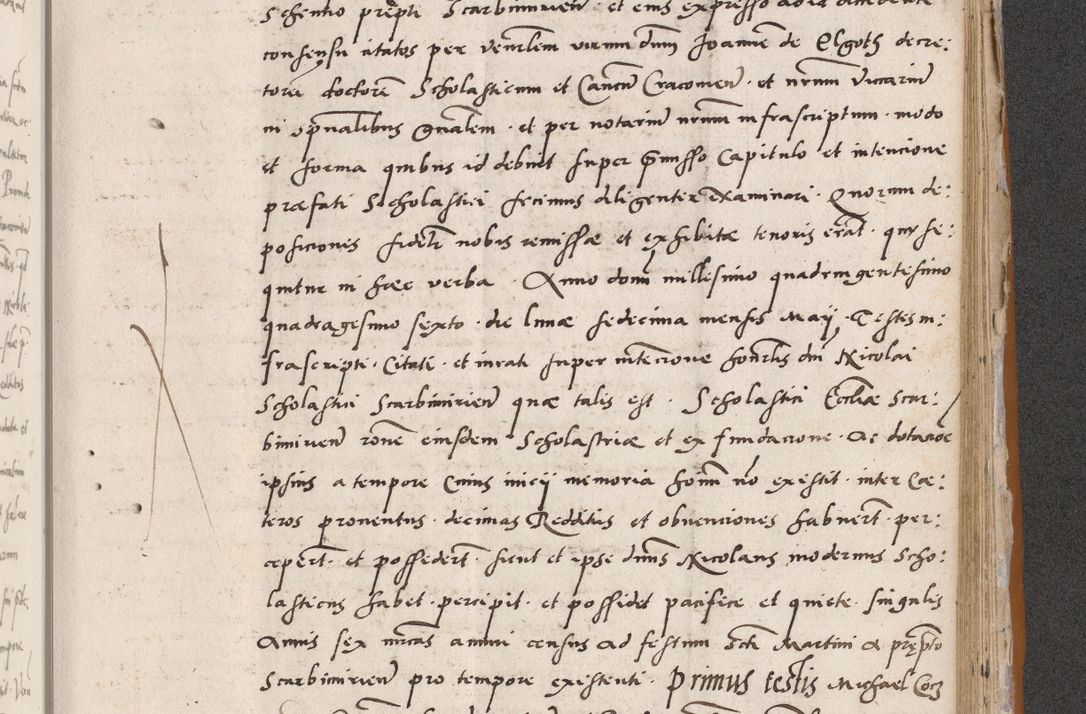 consensu citatos per venerlem virum dnm Joannem de Elgoth decre:
torum doctorem Scholasticum et Cancrm Cracovien et nrum Vicarium
in spualibus Gnalem et per notarium nrum infrascriptum modo
et forma quibus id debuit super Pmisso Capitulo et intencione
præfati Scholastici fecimus diligenter examinari Quorum de:
posiciones fideli nobis remissæ et exhibitæ tenoris erat qui se:
quitur in hæc verba Anno domi millesimo quadringentesimo
quadragesimo sexto die lunæ sedecima mensis Maij Testes in:
frascripti Citati et iurati super intencione honlis dni Nicolai
Scholastici Scarbimirien quæ talis est Scholastici Eccliæ Scar:
bimirien rone eiusdem Scholastriæ et ex fundacione Ac dotacoe
ipsius a tempore Cuius inicij memoria hoim no existit inter Cæ:
teros proventus decimas Redditus et obvenciones habuert per:
cepert et possedert sicut et ipse dnus Nicolaus modernus Scho:
lasticus habet percipit et possidet pacifice et quiete singulis
Annis sex mrcas annui census ad festum scti Martini a præpto
Scarbimirien pro tempore existenti Primus testis Michael Coch